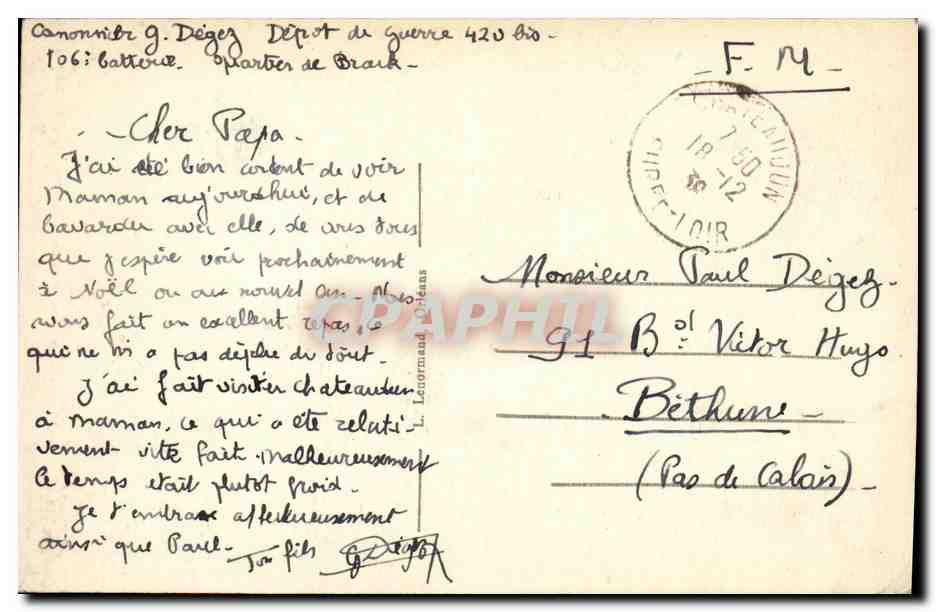 Canonnier G. Dégez Dépot de Guerre 420 bis-
106e batterie. Quartier de Brack-
- F. M -
CHATEAUDUN
7 50
18 -12
39
EURE-ET-LOIR
- Cher Papa -
J'ai été bien content de voir
Maman aujourdhui, et de
bavarder avec elle, de vous tous
que j'espère voir prochainement
à Noël ou au nouvel an - Nous
vous fait un excellent repas, ce
qui ne m'a pas déplu du tout -
J'ai fait visiter Chateaudun
à maman, ce qui a été relati-
vement vite fait. malheureusement
le temps était plutot froid -
Je t'embrasse affectueusement
ainsi que Paul -
Ton fils
G Dégez
L. Lenormand, Orléans
CPAPHIL
Monsieur Paul Dégez -
91 Bd Victor Hugo
Béthune -
(Pas de Calais) -